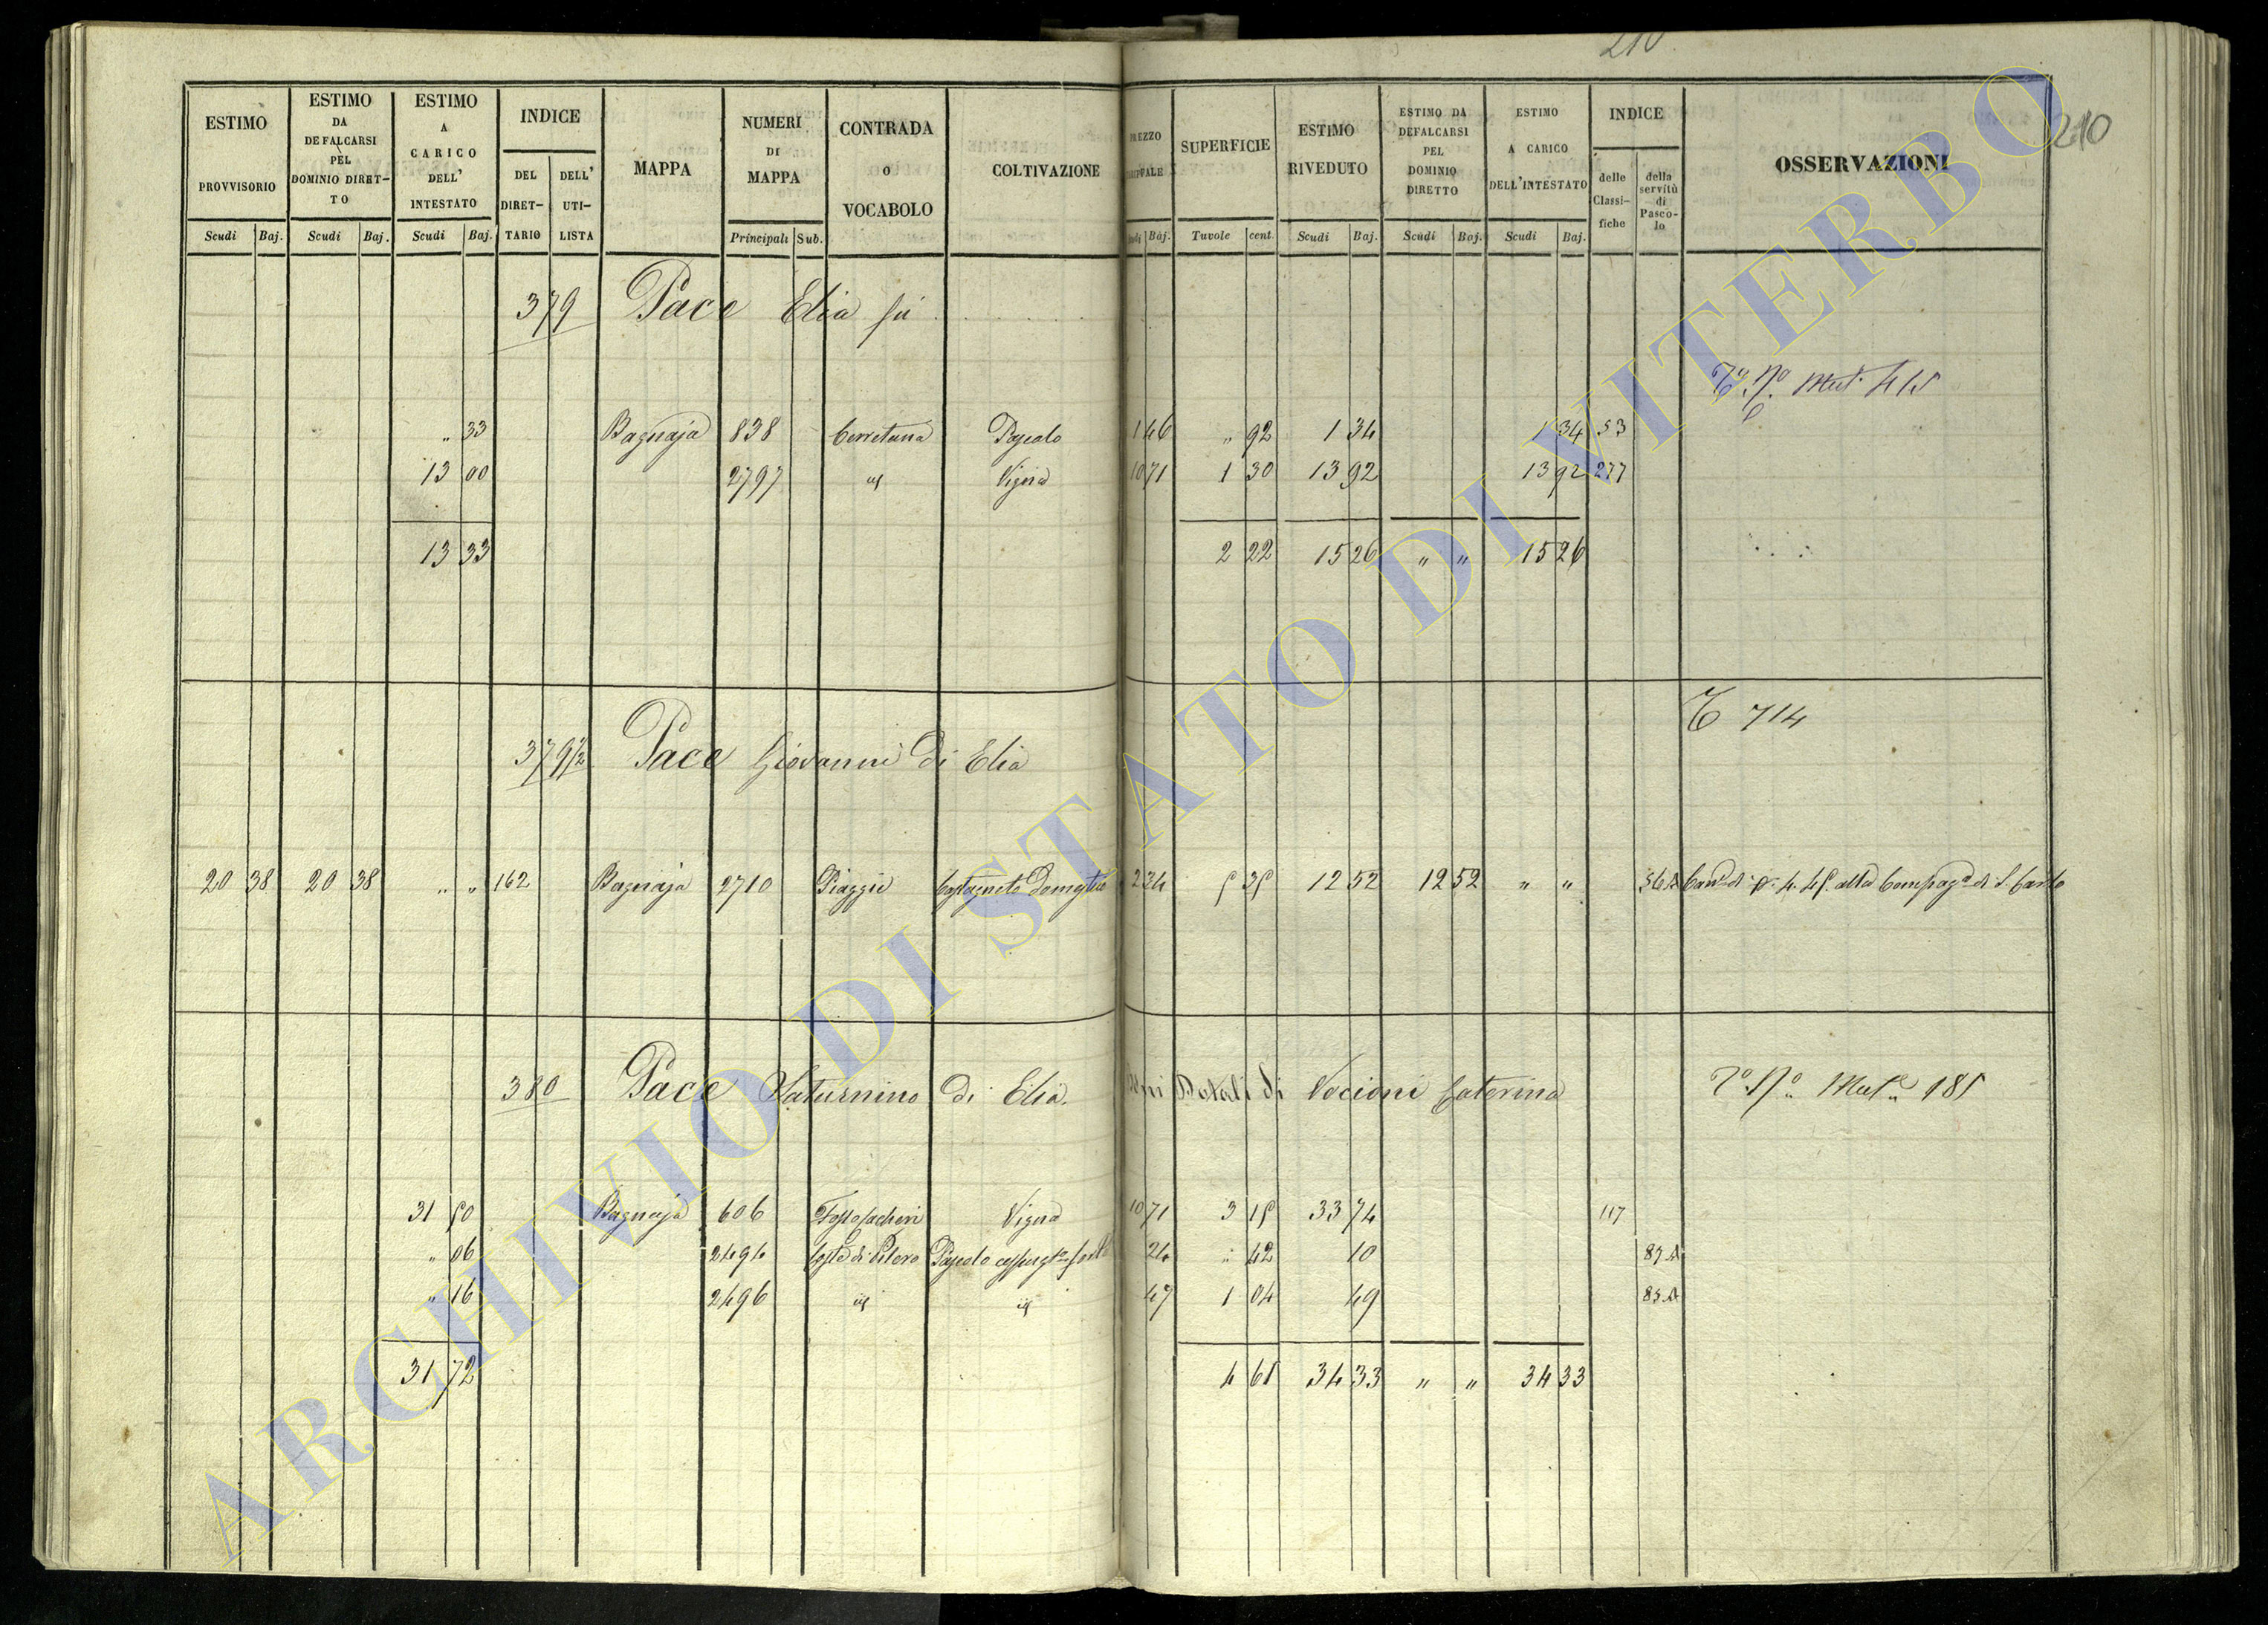 210
210
ESTIMO PROVVISORIO | ESTIMO DA DEFALCARSI PEL DOMINIO DIRETTO | ESTIMO A CARICO DELL' INTESTATO | INDICE DEL DIRETTARIO | DELL' UTILISTA | MAPPA | NUMERI DI MAPPA | CONTRADA O VOCABOLO | COLTIVAZIONE | PREZZO | SUPERFICIE | ESTIMO RIVEDUTO | ESTIMO DA DEFALCARSI PEL DOMINIO DIRETTO | ESTIMO A CARICO DELL'INTESTATO | INDICE delle Classifiche | della servitù di Pascolo | OSSERVAZIONI
Scudi | Baj. | Scudi | Baj. | Scudi | Baj. | Principali | Sub. | Baj. | Tavole | cent. | Scudi | Baj. | Scudi | Baj. | Scudi | Baj.
379 Pace Elia fù
" 33 Bagnaja 838 Cerretana Pascolo 1 46 " 92 1 34 1 34 53
13 00 2797 id Vigna 10 71 1 30 13 92 13 92 277
13 33 2 22 15 26 " " 15 26
T 714
379 1/2 Pace Giovanni di Elia
20 38 20 38 " " 162 Bagnaja 2710 Piaggie Castagneto Domestico 2 34 5 35 12 52 12 52 " " 36 A alla Compag.a di S. Carlo
380 Pace Saturnino di Elia. Dotali di Nocioni Caterina
31 50 Bagnaja 606 Vigna 10 71 3 15 33 74 117
" 06 2494 Pascolo 24 " 42 10 85 A
" 16 2496 id id 47 1 04 49 85 A
31 72 4 61 34 33 " " 34 33
ARCHIVIO DI STATO DI VITERBO